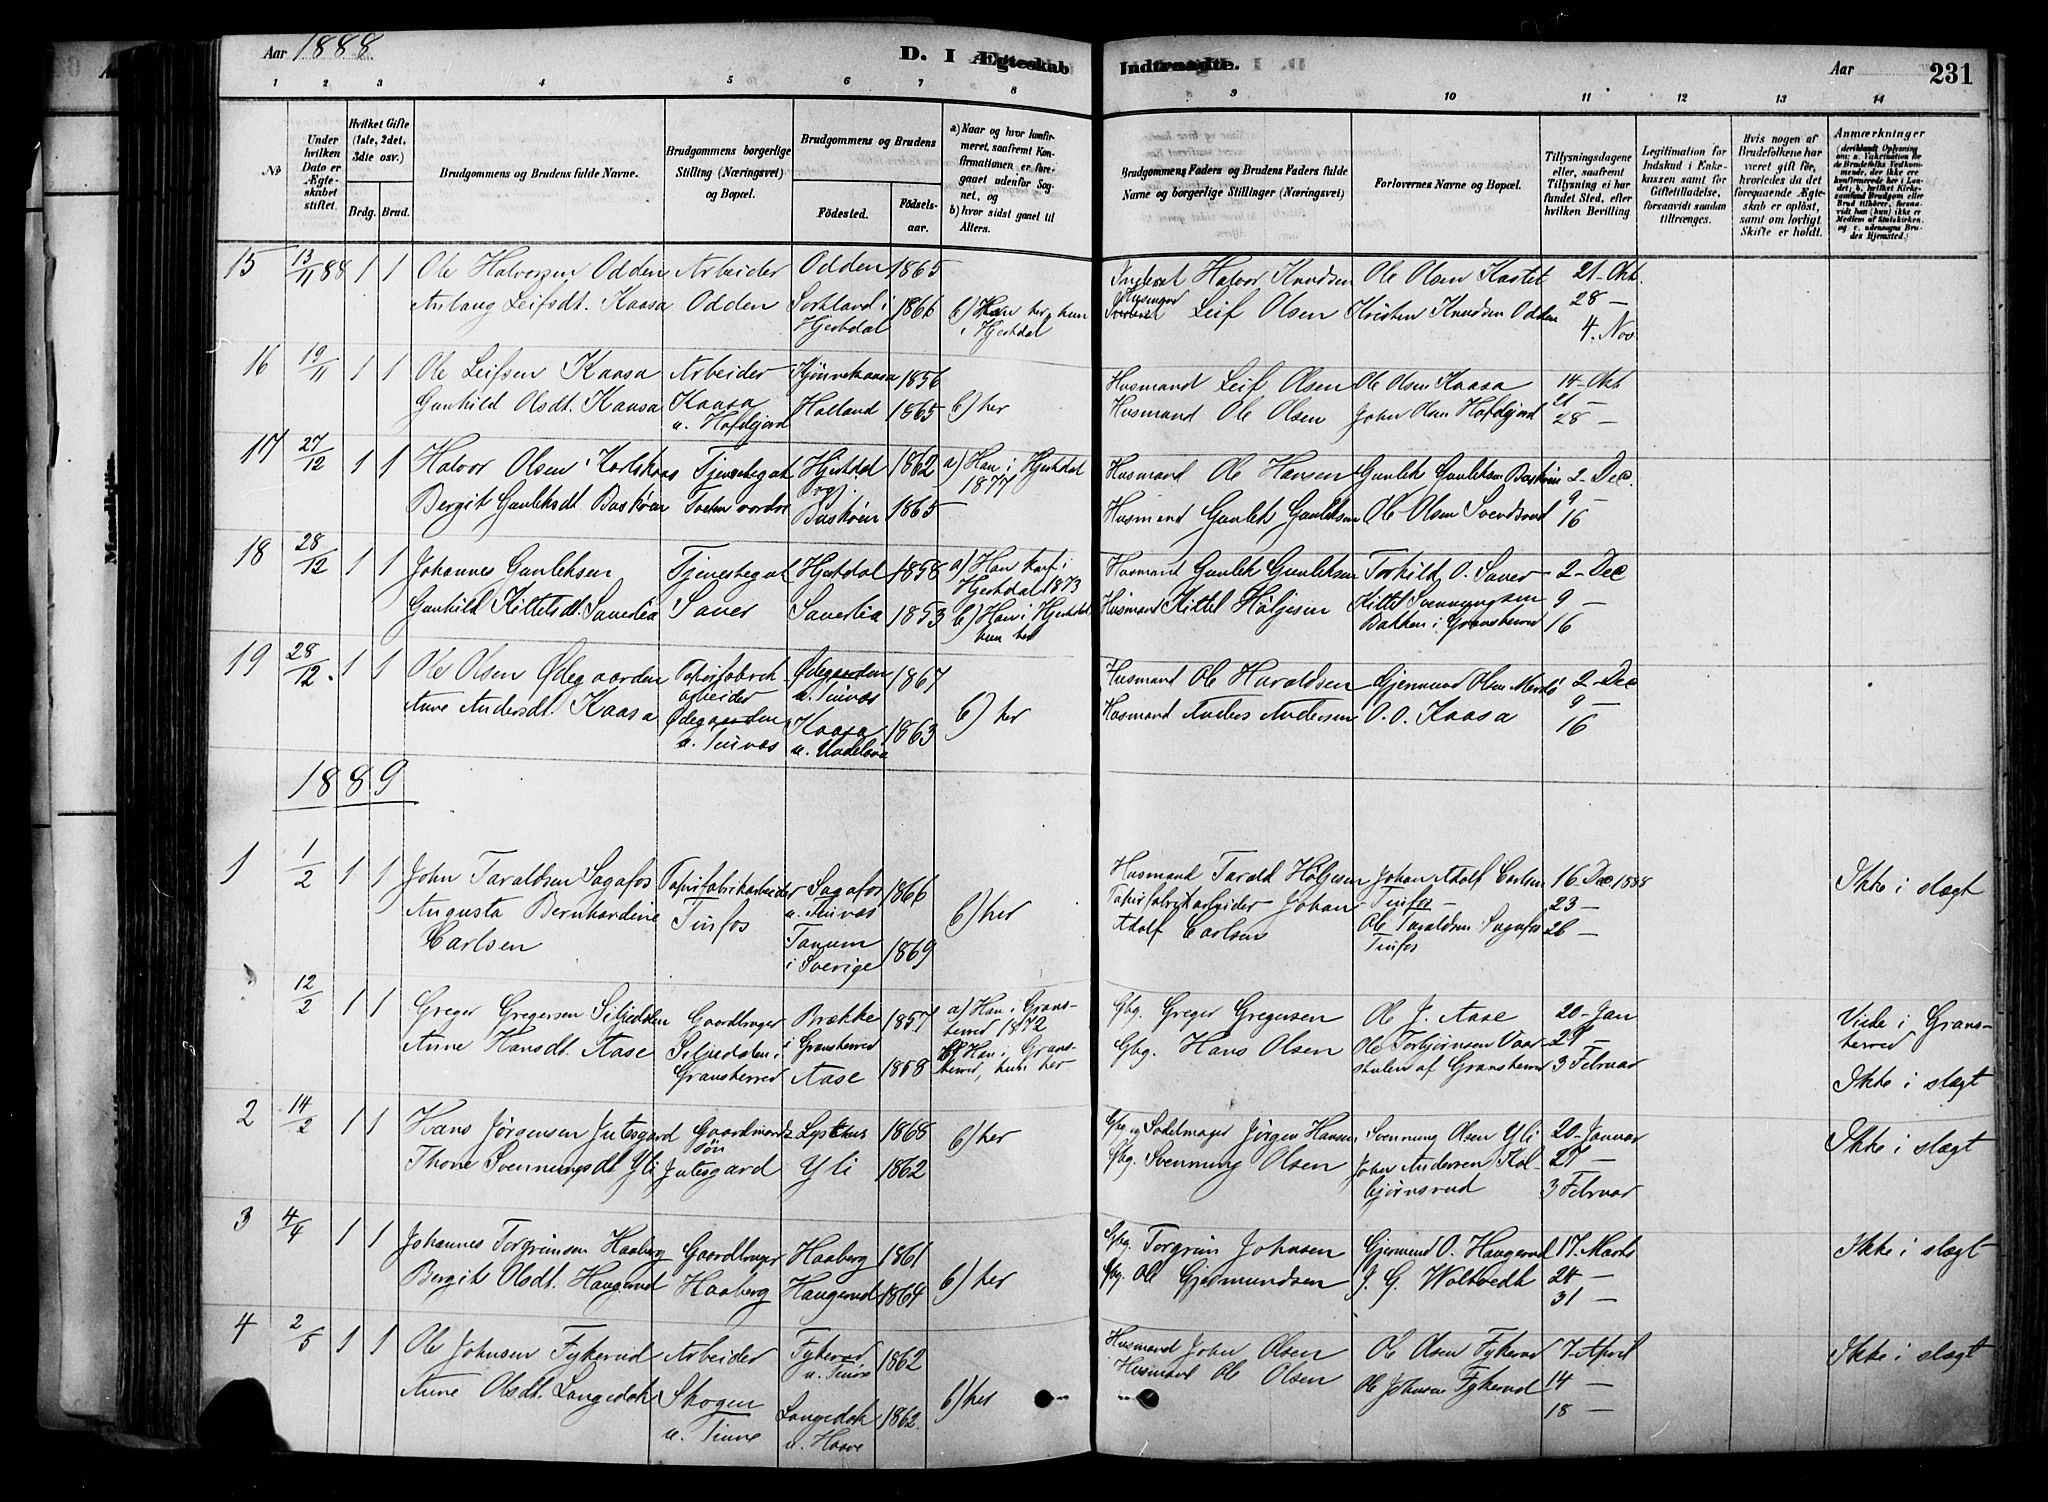 Aar 1888.
D. I Ægteskab Indtraadte.
Aar
231
1 2 3 4 5 6 7 8 9 10 11 12 13 14
No
Under hvilken Dato er Ægteskabet stiftet.
Hvilket Gifte (1ste, 2det, 3die osv.)
Brdg. Brud.
Brudgommens og Brudens fulde Navne.
Brudgommens borgerlige Stilling (Næringsvei) og Bopæl.
Brudgommens og Brudens
Fødested.
Fødselsaar.
a) Naar og hvor konfirmeret, saafremt Konfirmationen er foregaaet udenfor Sognet, og
b) hvor sidst gaaet til Alters.
Brudgommens Faders og Brudens Faders fulde Navne og borgerlige Stillinger (Næringsvei)
Forlovernes Navne og Bopæl.
Tillysningsdagene eller, saafremt Tillysning ei har fundet Sted, efter hvilken Bevilling
Legitimation for Indskud i Enkekassen samt for Giftetilladelse, forsaavidt saadan tiltrænges.
Hvis nogen af Brudefolkene har været gift før, hvorledes da det foregaaende Ægteskab er opløst, samt om lovligt Skifte er holdt.
Anmærkninger
15 13/11 88 1 1 Ole Halvorsen Odden Arbeider Odden 1865 Halvor Knudsen Ole Olsen Kastet 21- Okt.
Aslaug Leifsdt. Kaasa Odden Sortland i Hjertdal 1866 b) Han her, hun i Hjertdal Leif Olsen Kristen Knudsen Odden 28 -
4. Nov
16 19/11 1 1 Ole Leifsen Kaasa Arbeider Kjønvekaasa 1856 Husmand Leif Olsen Ole Olsen Kaasa 14- Okt
Gunhild Olsdt. Kaasa Kaasa u. Hofdejord Haland 1865 b) her Husmand Ole Olsen John Olsen Hofdejord 21 -
28 -
17 27/12 1 1 Halvor Olsen Karlskaas Tjenestegut Hjertdal 1862 a) Han i Hjertdal 1877 Husmand Ole Hansen Gunlek Gunleksen Baskøen 2- Dec.
Bergit Gunleksdt Baskøen Baskøen 1865 Husmand Gunlek Gunleksen Ole Olsen 9 -
16
18 28/12 1 1 Johannes Gunleksen Tjenestegut Hjertdal 1858 a) Han konf. i Hjertdal 1873 Husmand Gunlek Gunleksen Torkild O. Saver 2- Dec
Gunhild Kittelsdt. Saverlia Saver Saverlia 1853 b) Han i Hjertdal hun her Husmand Kittel Høljesen Kittel Svenningsen Bakken i Gransherred 9 -
16
19 28/12. 1 1 Ole Olsen Ødegaarden Papirfabrikarbeider Ødegaarden u. Tinnæs 1867 Husmand Ole Haraldsen Gjermund Olsen 2- Dec
Anne Andersdt. Kaasa Ødegaarden u. Tinnæs Kaasa 1863 b) her Husmand Anders Andersen O. O. Kaasa 9 -
16
1889
1 1/2 1 1 John Taraldsen Sagafos Papirfabrikarbeider Sagafos u. Tinnæs 1866 Husmand Tarald Høljesen Johan Adolf Carlsen 16- Dec. 1888 Ikke i slægt
Augusta Bernhardine Carlsen Tinfos Tanum i Sverige 1869 b) her Papirfabrikarbeider Johan Adolf Carlsen Tinfos 23 -
Ole Taraldsen Sagafos 26 -
Tinfos
12/2 1 1 Greger Gregersen Siljedalen Gaardbruger Brække i Gransherred 1857 a) Han i Gransherred 1872 Gbg. Greger Gregersen Ole J. Aase 20- Jan Viede i Gransherred
Anne Hansdt. Aase Siljedalen i Gransherred Aase 1858 b) Han i Gransherred, hun her Gbg. Hans Olsen Ole Torbjørnsen Vaarstulen af Gransherred 27 -
3 Februar Ikke i slægt
2 14/2 1 1 Hans Jørgensen Jutesgard Gaardmandssøn Lysthus 1868 b) her Gbg. og Sadelmager Jørgen Hansen Svenning Olsen Yli 20- Januar Ikke i slægt
Thone Svenningsdt. Yli Jutesgard Yli 1862 Gbg. Svenning Olsen John Andersen Kolbjørnsrud 27 -
3 Februar
3 4/4 1 1 Johannes Torgrimsen Haaberg Gaardbruger Haaberg 1861 Gbg. Torgrim Johnsen Gjermund O. Haugerud 17. Marts Ikke i slægt
Bergit Olsdt. Haugerud Haaberg Haugerud 1864 b) her Gbg. Ole Gjermundsen J. G. Woltvedt 24 -
31 -
4 2/5 1 1 Ole Johnsen Fykerud Arbeider Fykerud u. Tinæs 1862 Husmand John Olsen Ole Olsen Fykerud 7. April Ikke i slægt
Anne Olsdt. Langedok Skogen u. Tinne Langedok u. Haave 1862. b) her Husmand Ole Olsen Ole Johnsen Fykerud 14 -
18 -